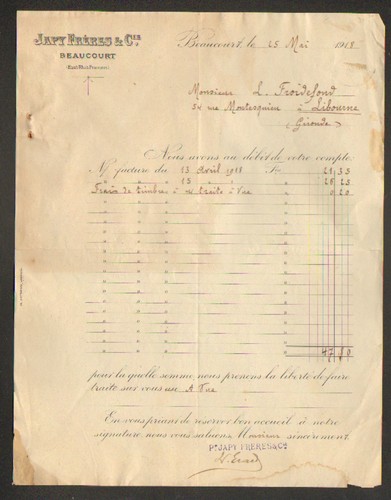 JAPY FRÈRES & Cie
BEAUCOURT
Beaucourt, le 25 Mai 1918
Monsieur L. Froidefond
54 rue Montesquieu à Libourne
(Gironde)
Nous avons au débit de votre compte:
N/ facture du 13 Avril 1918
Frais de timbre à n/ traite à vue 0 20
47 80
pour laquelle somme nous prenons la liberté de faire
traite sur vous au A Vue
En vous priant de réserver bon accueil à notre
signature, nous vous saluons, Monsieur sincèrement.
Pr JAPY FRÈRES & Cie